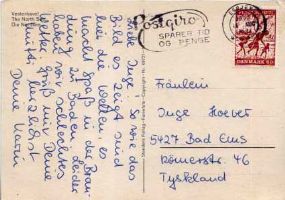 Vesterhavet
The North Sea
Die Nordsee
Liebe Inge! So wie das
Bild es zeigt sind
hier die Wellen, es
macht Spaß in der Bran-
dung zu Baden. Leider
haben wir schlechtes
Wetter. Gruß von Deine
herzlichst
Deine Karin
Postgiro
SPARER TID
OG PENGE
DANMARK
Fräulein
Inge Hoeber
5427 Bad Ems
Römerstr. 46
Tyskland